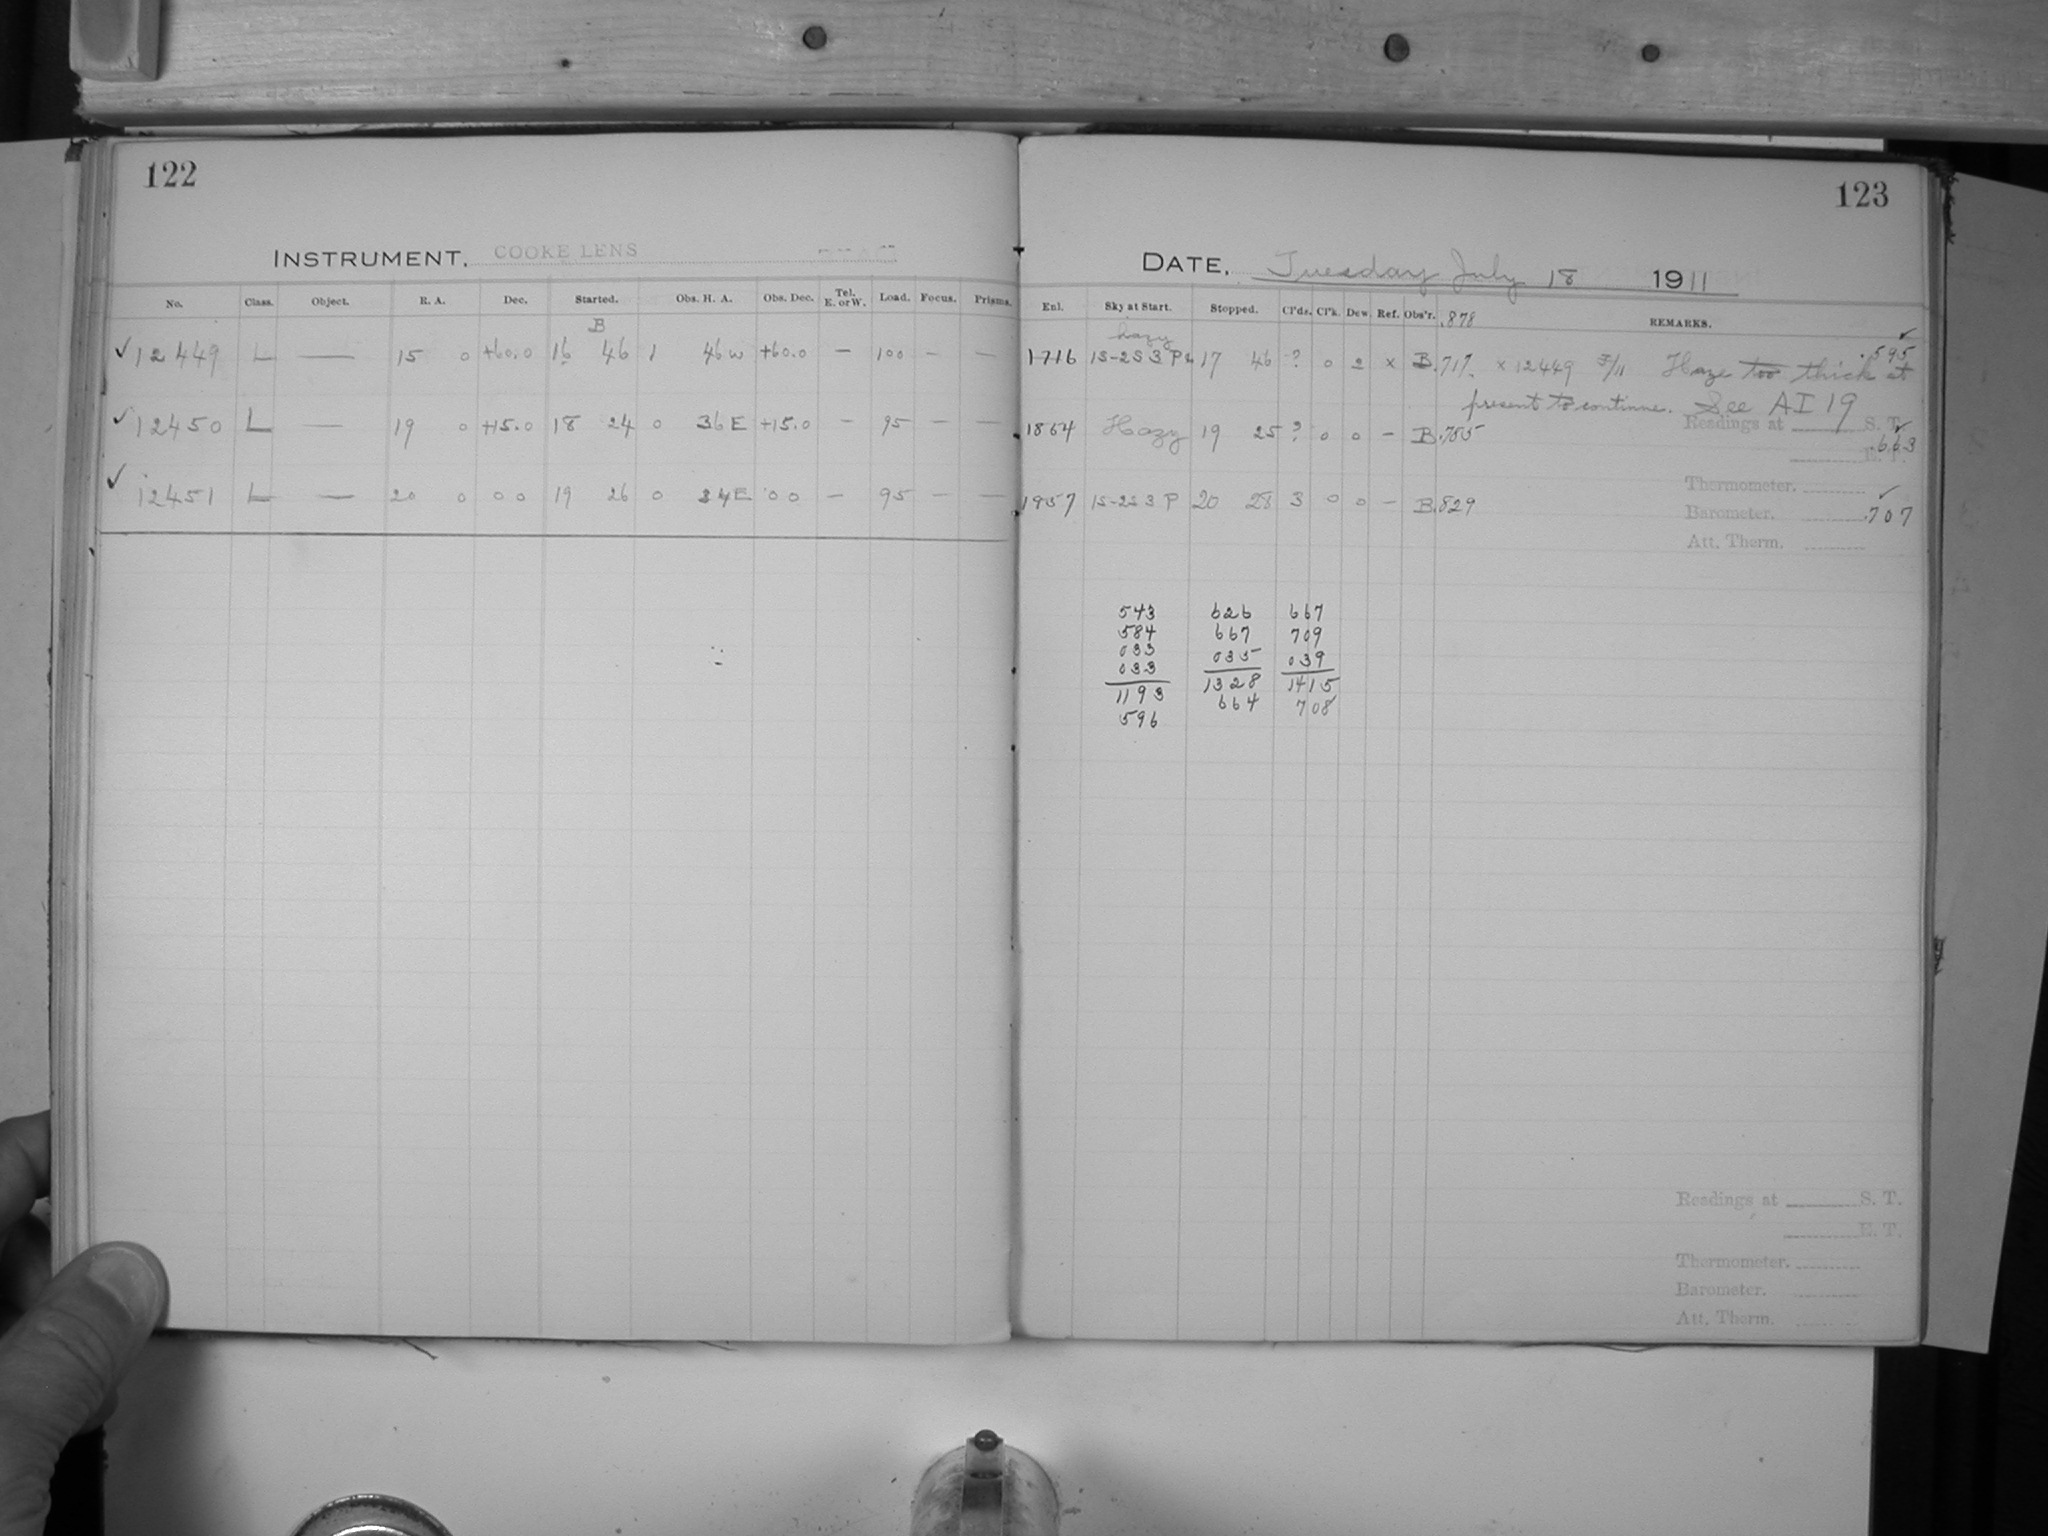 122
INSTRUMENT. COOKE LENS
No. Class. Object. R. A. Dec. Started. Obs. H. A. Obs. Dec. Tel. E. or W. Load. Focus. Prisms.
B
✓ 12449 L — 15 0 +60.0 16 46 1 46 W +60.0 — 100 — —
✓ 12450 L — 19 0 +15.0 18 24 0 36 E +15.0 — 95 — —
✓ 12451 L — 20 0 0 0 19 26 0 34 E 0 0 — 95 — —
123
DATE. Tuesday July 18 1911
Enl. Sky at Start. Stopped. Cl'ds. Cl'k. Dew. Ref. Obs'r. .878 REMARKS.
hazy ✓
.595
1716 1S-2S 3 P 17 46 ? 0 2 x B .717 x 12449 Haze too thick at
present to continue. See AI 19
Readings at S. T. ✓
1864 Hazy 19 25 ? 0 0 — B .785 .663
Thermometer. ✓
1957 1S-2S 3 P 20 28 3 0 0 — B .829 Barometer. .707
Att. Therm.
543 626 667
584 667 709
033 035 039
033 1328 1415
1193 664 708
596
Readings at S. T.
E. T.
Thermometer.
Barometer.
Att. Therm.